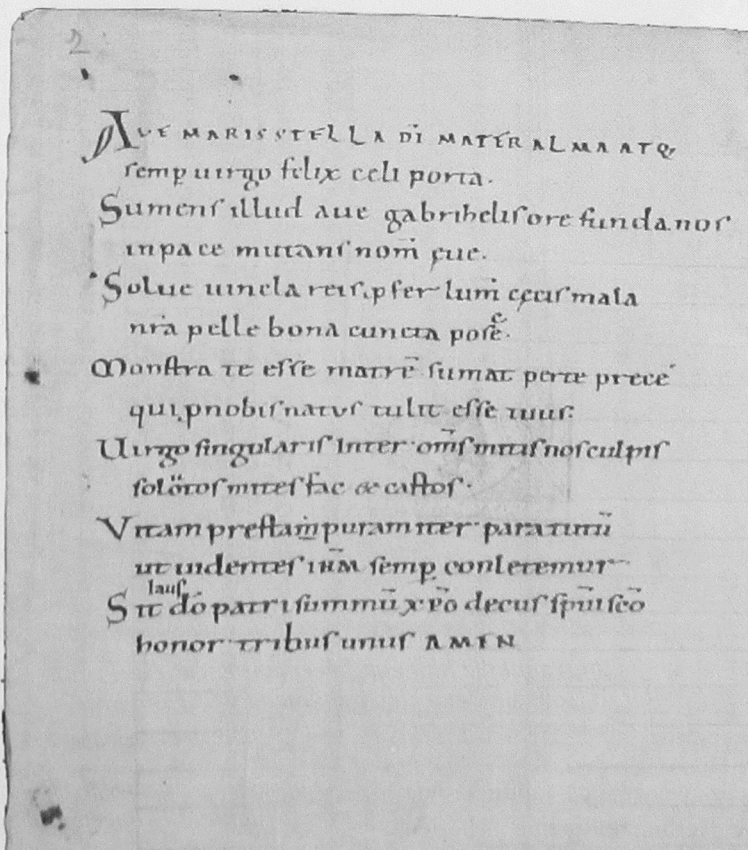 2
AVE MARIS STELLA DĪ MATER ALMA ATQ;
semp̱ uirgo felix celi porta.
Sumens illud aue gabrihelis ore funda nos
in pace mutans nom̄ ęue.
Solue uincla reis ꝓfer lum̄ cęcis mala
nr̄a pelle bona cuncta posce.
Monstra te esse matrē sumat per te precē
qui ꝓ nobis natus tulit esse tuus.
Uirgo singularis Inter om̄s mitis nos culpis
solutos mites fac & castos.
Vitam prestam puram iter para tutū
ut uidentes IHM̄ semp̱ conletemur
Sit laus dō patri summū xp̄o decus sp̄ui scō
honor tribus unus AMEN